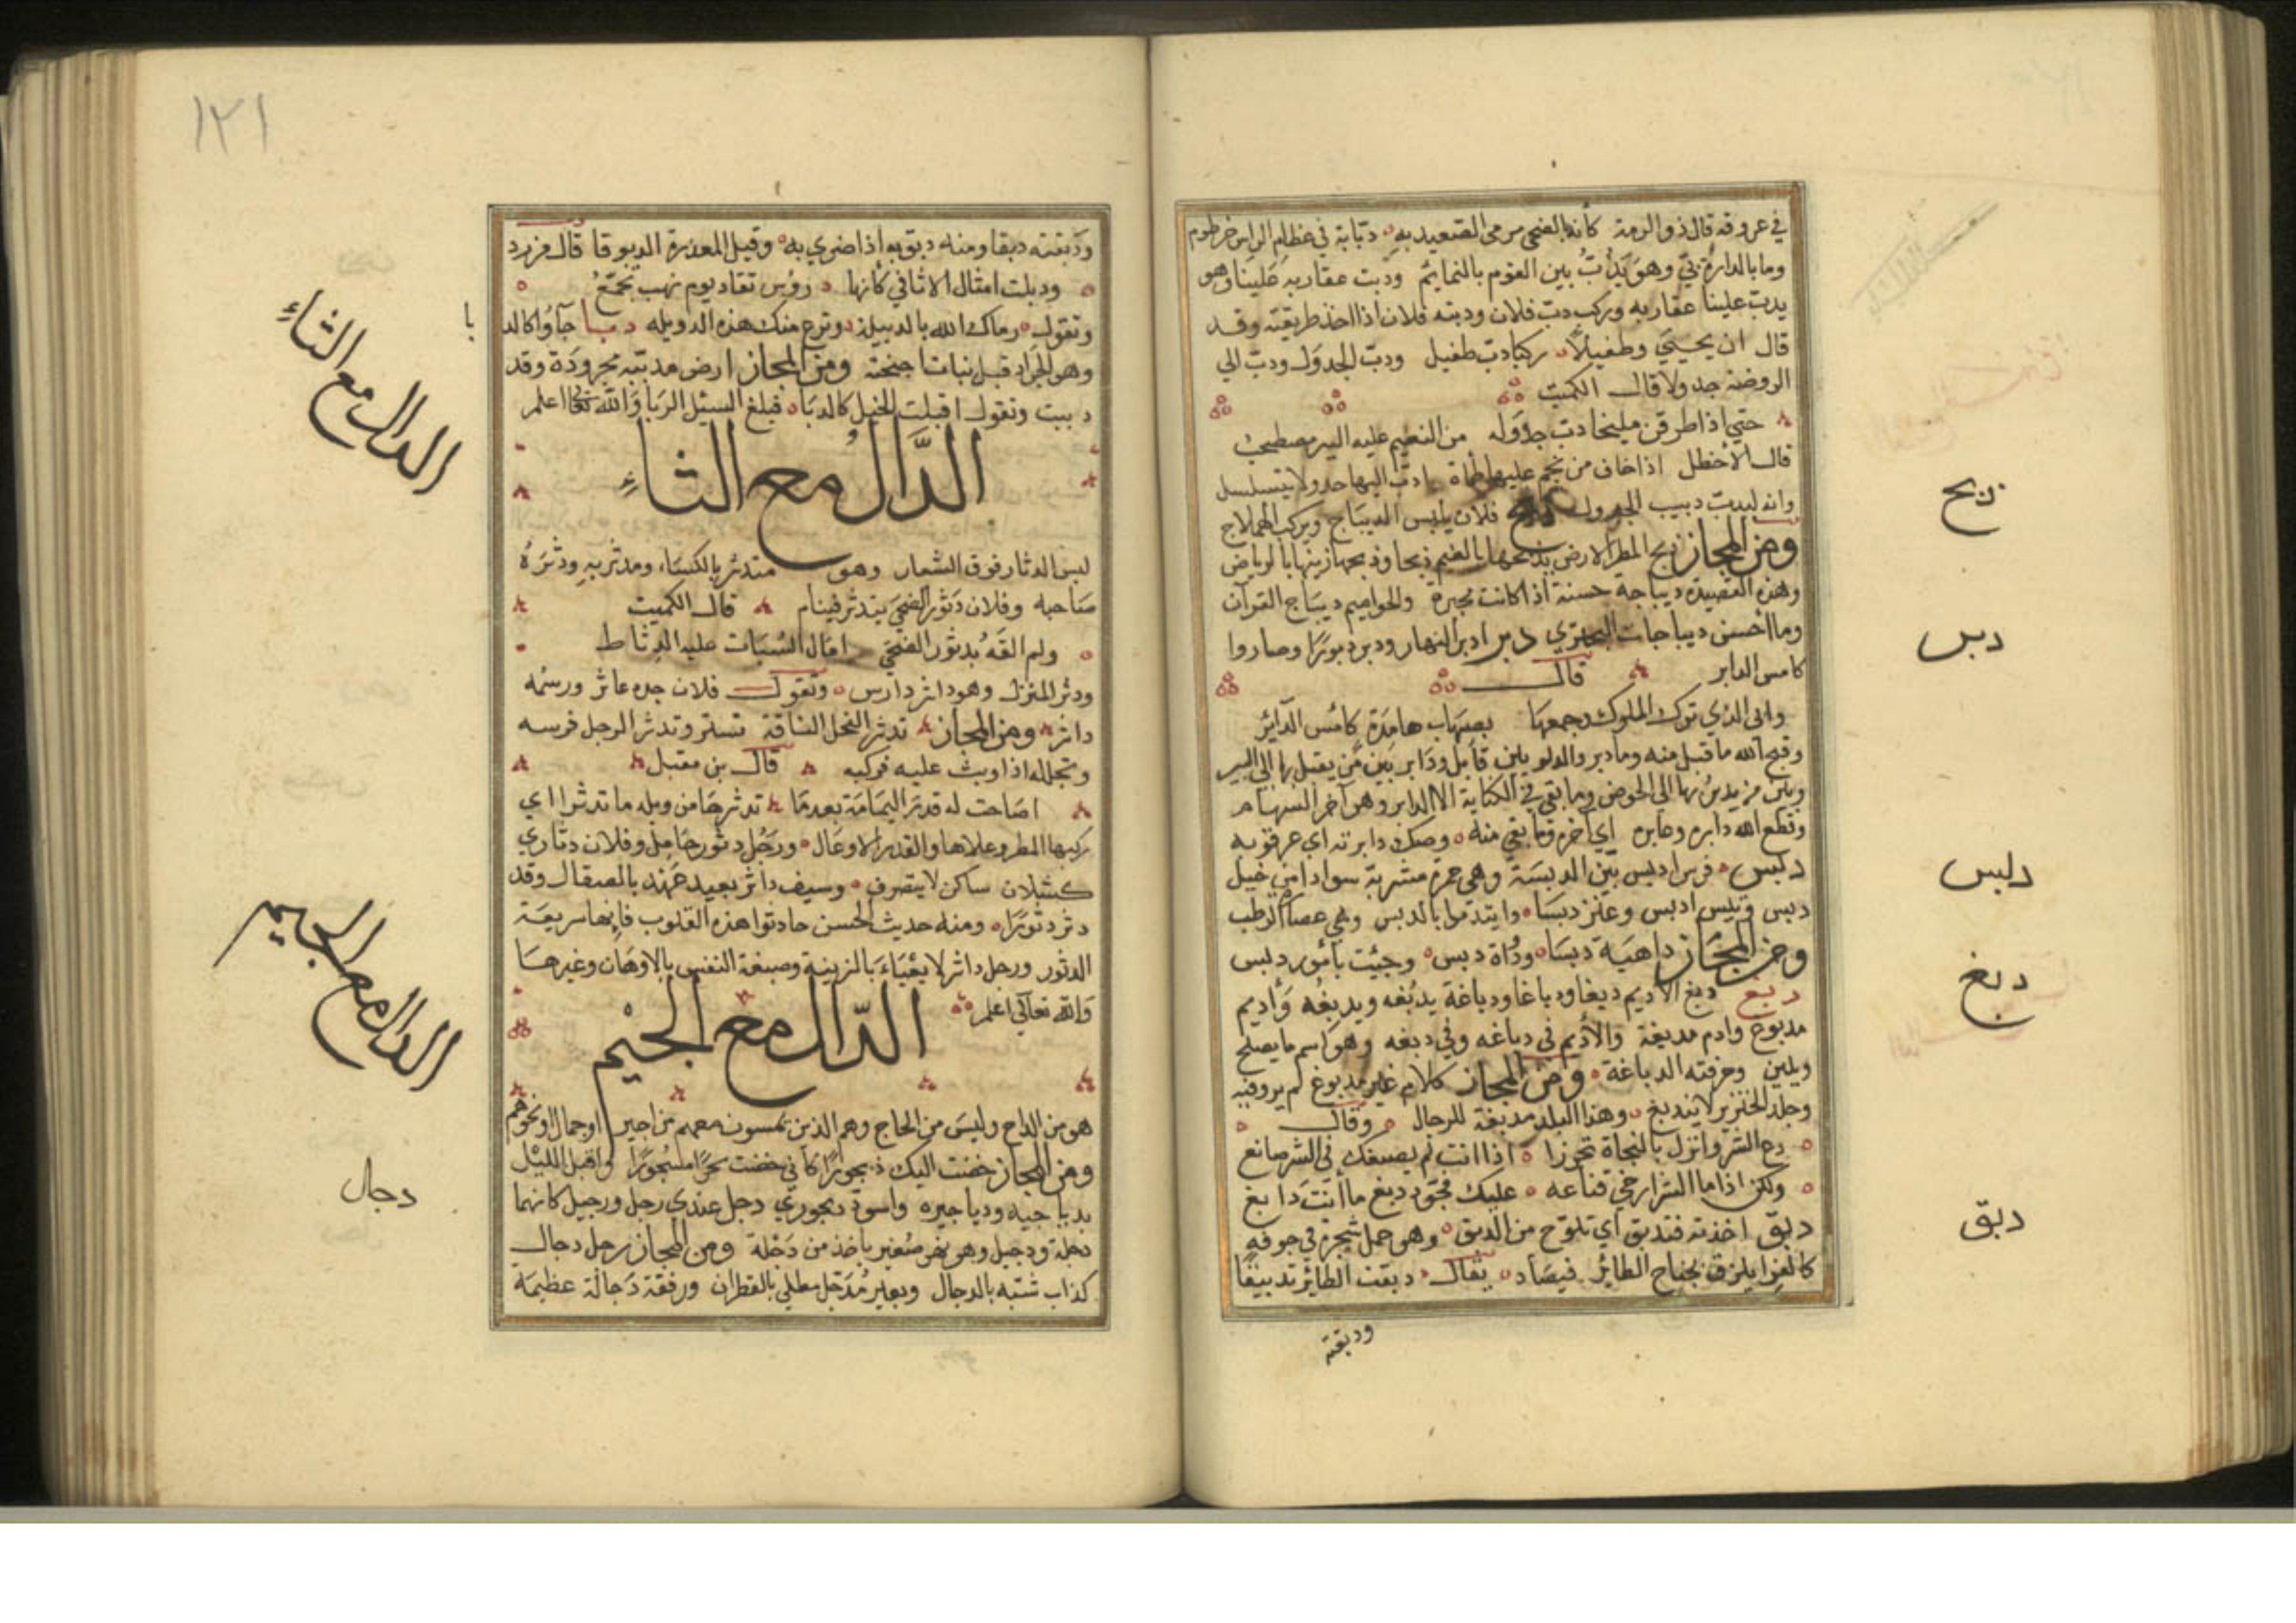 في عروقه قال ذو الرمة كأنه بالضحى مرمى الصعيد به دبابة في عظام الراس خرطوم
وما بالدار دبي وهو يدب بين القوم بالنمايم ودبت عقاربه علينا وهو
يدب علينا عقاربه وركب دب فلان ودبته فلان اذا اخذ طريقته وقد
قال ان يحيي وطفيلا ركبا دب طفيل ودب الجدول ودب الي
الروضة جدولا قال الكميت
حتي اذا طرقن مليخا دب جدوله من النعيم عليه البير مصطحب
قال الاخطل اذا خاف من نجم عليها ظماة ادب اليها جدولا يتسلسل
وانه ليدب دبيب الجدول فلان يلبس الديباج ويركب الهملاج
ومن المجاز ذبح المطر الارض يذبحها بالغيم ذبحا وذبحها زينها بالرياض
وهذه القصيدة ديباجة حسنة اذا كانت محبرة والحواميم ديباج القرآن
وما أحسن ديباجات البحتري دبر ادبر النهار ودبر دبورا وصاروا
كامس الدابر قال
وابى الذي ترك الملوك وجمعها بصهاب هامدة كامس الدابر
وقبح الله ما قبل منه وما دبر والدلو بين قابل ودابر بين من يقبل بها الي البير
وبين من يدبر بها الي الحوض وما بقي في الكنانة الا الدابر وهو آخر السهام
وقطع الله دابره وغابره اي آخره وما بقي منه وصك دابرته اي عرقوبه
دلبس فرس ادبس بين الدبسة وهي حمرة مشربة سوادا من خيل
دبس وتيس ادبس وعنز دبسا وايتدموا بالدبس وهي عصارة الرطب
ومن المجاز داهية دبسا ودهاة دبس وجئت بأمور دلبس
دبغ دبغ الاديم دبغا ودباغا ودباغة يدبغه ويدبغه وأديم
مدبوغ وادم مدبغة والأديم في دباغه وفي دبغه وهو اسم ما يصلح
ويلين وحرفته الدباغة ومن المجاز كلام غير مدبوغ لم يرو فيه
وجلد الخنزير لا يندبغ وهذا البلد مدبغة للرجال وقال
دع الشر وانزل بالنجاة تحرزا اذا انت لم يصبغك في الشر صانع
ولكن اذا ما الشر ارخى قناعه عليك فجود دبغ ما أنت دابغ
دبق اخذته فتدبق اي تلوح من الدبق وهو حمل شجرة في جوفه
كالغرا يلزق بجناح الطائر فيصاد يقال دبقت الطائر تدبيقا
ودبقته
ذبح
دبس
دلبس
دبغ
دبق
١٢١
ودبقته دبقا ومنه دبق به اذا ضري به وقيل المعذرة الدبوقا قال مزرد
ودبلت امثال الاثافي كأنها رؤس نقاد يوم نهب تجمع
وتقول رماك الله بالدبيلة وترع منك هذه الدويله دبا جاؤا كالد
با
وهو الجراد قبل نبات اجنحته ومن المجاز ارض مدبية مجرودة وقد
دبيت وتقول اقبلت الخيل كالدبا فبلغ السيل الربا والله تعالى اعلم
الدال مع الثاء
لبس الدثار فوق الشعار وهو متدثر بالكساء ومدثر به ودثره
صاحبه وفلان دثور الضحى يتدثر فينام قال الكميت
ولم القه بدثور الضحى امال السبات عليه الدثاط
ودثر المنزل وهو داثر دارس وتقول فلان جده عاثر ورسمه
داثر ومن المجاز تدثر الفحل الناقة تسنر وتدثر الرجل فرسه
وتجلله اذا وثب عليه فركبه قال بن مقبل
اصاحت له قدر اليمامة بعد ما تدثرها من وبله ما تدثرا اي
ركبها المطر وعلاها والقدر الاوعال ورجل دثور خامل وفلان دثاري
كسلان ساكن لا يتصرف وسيف داثر بعيد عهد بالصقال وقد
دثر دثورا ومنه حديث الحسن حادثوا هذه القلوب فانها سريعة
الدثور ورجل داثر لا يعباء بالزينة وصبغة النفس بالاوهان وغيرها
والله تعالى اعلم
الدال مع الجيم
هو من الداج وليس من الحاج وهم الذين يمسون معهم من اجير او جمال او نحوهم
ومن المجاز خضت اليك ديجورا كأني خضت بحرا مسجورا واقبل الليل
بدياجيه ودياجيره واسود ديجوري دجل عندي رجل ورجيل كانهما
دجلة ودجيل وهو نهر صغير ياخذ من دجلة ومن المجاز رجل دجال
كذاب شبه بالدجال وبعير مدجل مطلي بالقطران ورفقة دجالة عظيمة
الدال مع الثاء
الدال مع الجيم
دجال